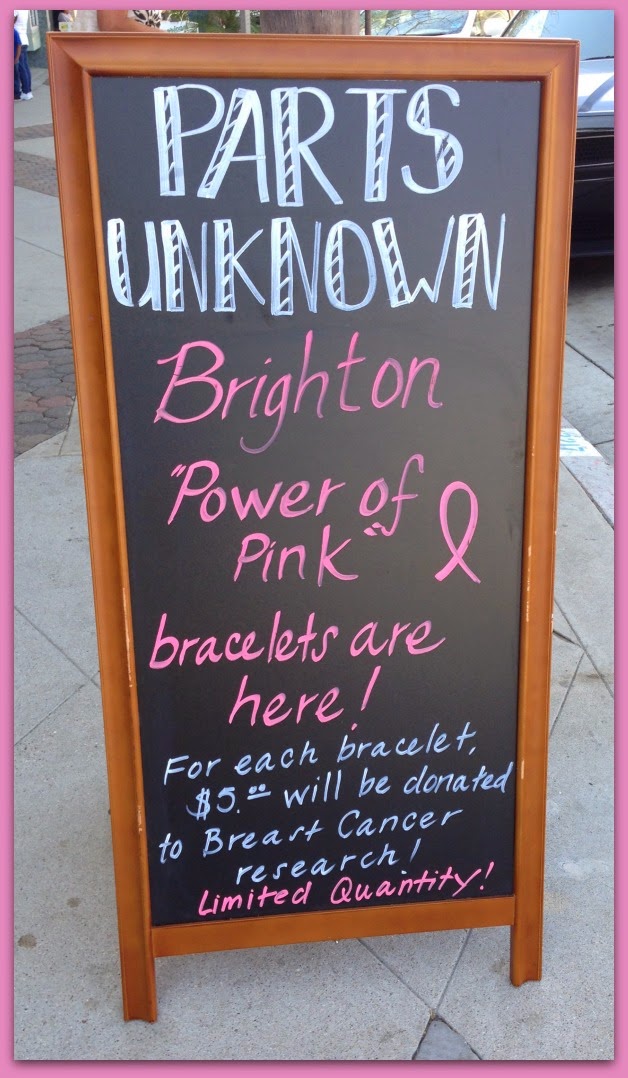 PARTS
UNKNOWN
Brighton
"Power of
Pink"
bracelets are
here!
For each bracelet,
$5.00 will be donated
to Breast Cancer
research!
Limited Quantity!